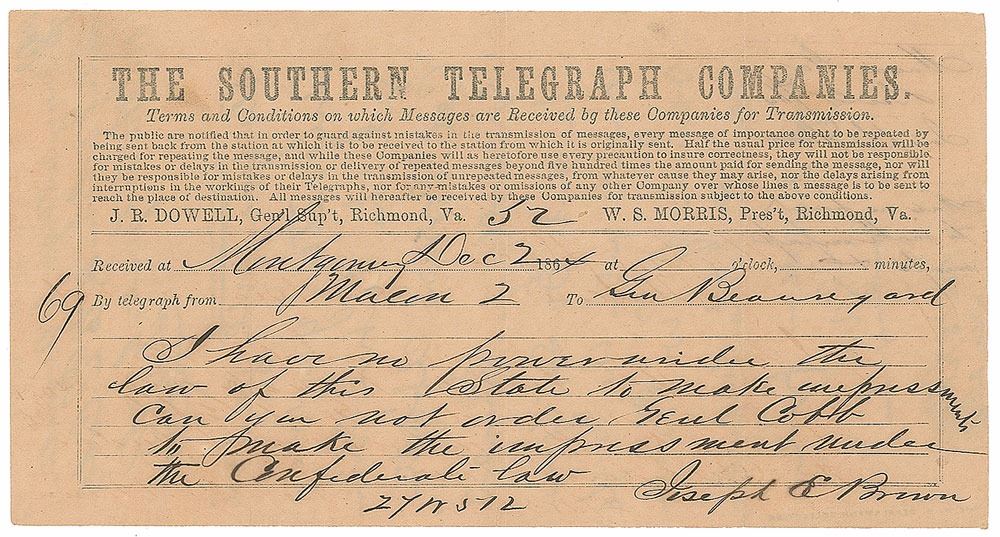 THE SOUTHERN TELEGRAPH COMPANIES.
Terms and Conditions on which Messages are Received by these Companies for Transmission.
The public are notified that in order to guard against mistakes in the transmission of messages, every message of importance ought to be repeated by
being sent back from the station at which it is to be received to the station from which it is originally sent. Half the usual price for transmission will be
charged for repeating the message, and while these Companies will as heretofore use every precaution to insure correctness, they will not be responsible
for mistakes or delays in the transmission or delivery of repeated messages beyond five hundred times the amount paid for sending the message, nor will
they be responsible for mistakes or delays in the transmission of unrepeated messages, from whatever cause they may arise, nor the delays arising from
interruptions in the workings of their Telegraphs, nor for any mistakes or omissions of any other Company over whose lines a message is to be sent to
reach the place of destination. All messages will hereafter be received by these Companies for transmission subject to the above conditions.
J. R. DOWELL, Gen'l Sup't, Richmond, Va. 52 W. S. MORRIS, Pres't, Richmond, Va.
Received at Montgomery Dec 2 1864 at o'clock, minutes,
69 By telegraph from Macon 2 To Gen Beauregard
I have no power under the
law of this State to make impressments
Can you not order Genl Cobb
to make the impressment under
the Confederate law
Joseph E Brown
27 W 512